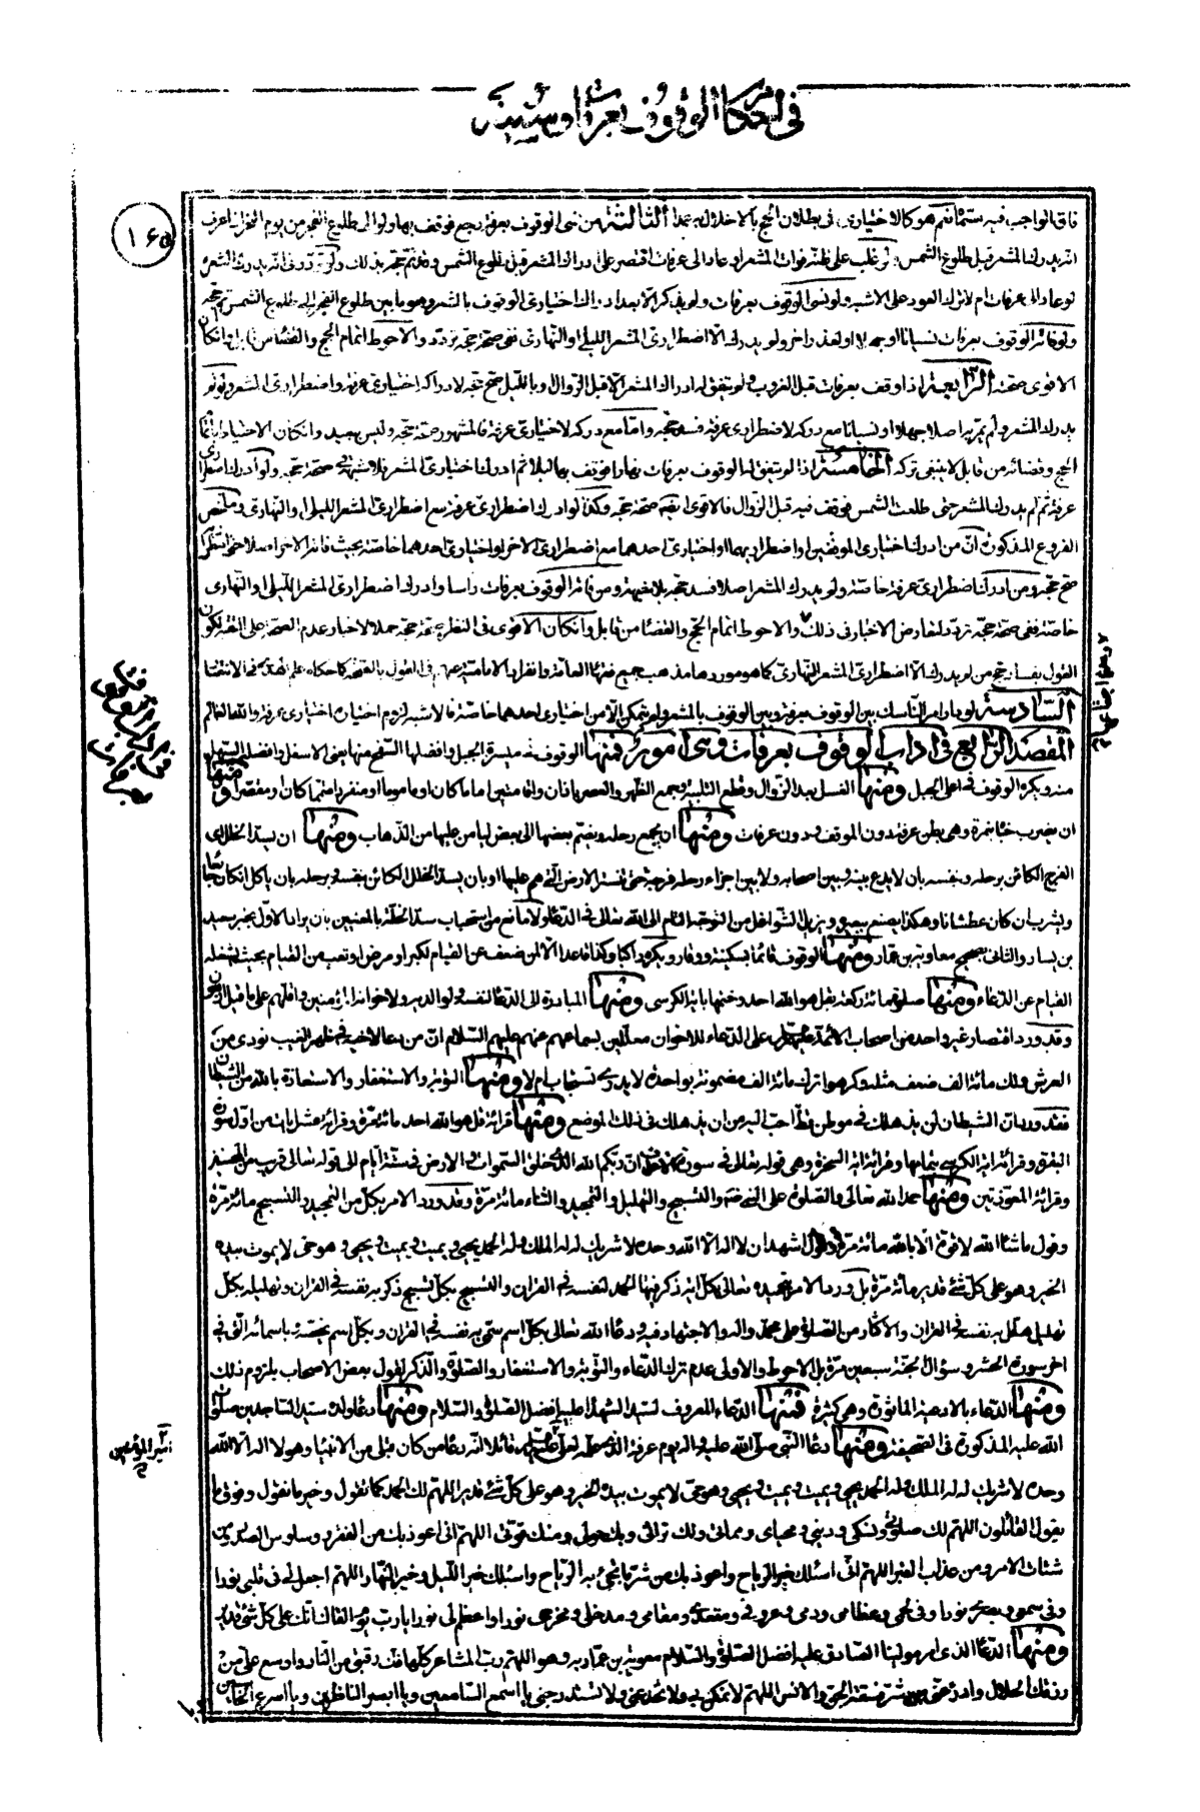 في احكام الوقوف بعرفات وسننه
١٦٥
فاق الواجب فيه ستمائهم هو كالاختياري في بطلان الحج بالاخلال به عمدا الثالثة من نسى الوقوف بعرفة رجع فوقف بها ولو الى طلوع الفجر من يوم النحر اذا عرف
انه يدرك المشعر قبل طلوع الشمس ولو غلب على ظنه فوات المشعر لو عاد الى عرفات اقتصر على ادراك المشعر قبل طلوع الشمس وقد تم حجه بذلك ولو تردد في انه يدرك المشعر
لو عاد الى عرفات ام لا ترك العود على الاشبه ولو نسى الوقوف بعرفات ولم يذكر الا بعد ادراك اختياري الوقوف بالمشعر وهو ما بين طلوع الفجر الى طلوع الشمس تم حجه
ولو فاته الوقوف بعرفات نسيانا او جهلا او لعذر اخر ولم يدرك الا اضطراري المشعر الليلي او النهاري ففي صحة حجه تردد والاحوط اتمام الحج والقضاء من قابل وان كان
الاقوى صحته الرابعة اذا وقف بعرفات قبل الغروب ولم يتفق له ادراك المشعر الا قبل الزوال وبالليل صح حجه لادراكه اختياري عرفة واضطراري المشعر ولو لم
يدرك المشعر ولم يمر به اصلا جهلا او نسيانا مع دركه لاضطراري عرفة فسد حجه واما مع دركه لاختياري عرفة فالمشهور صحة حجه وليس ببعيد وان كان الاحتياط باتمام
الحج وقضائه من قابل لا ينبغي تركه الخامسة اذا لم يتفق له الوقوف بعرفات نهارا فوقف بها ليلا ثم ادرك اختياري المشعر فلا شبهة في صحة حجه ولو ادرك اضطراري
عرفة ثم لم يدرك المشعر حتى طلعت الشمس فوقف فيه قبل الزوال فالاقوى ايضا صحة حجه وكذا لو ادرك اضطراري عرفة مع اضطراري المشعر الليلي او النهاري وملخص
الفروع المذكورة ان من ادرك اختياري الموقفين او اضطراريهما او اختياري احدهما مع اضطراري الاخر او اختياري احدهما خاصة بحيث فاته الاخر اصلا حتى اضطراريا
صح حجه ومن ادرك اضطراري عرفة خاصة ولم يدرك المشعر اصلا فسد حجه بلا شبهة ومن فاته الوقوف بعرفات راسا وادرك اضطراري المشعر الليلي او النهاري
خاصة ففي صحة حجه تردد لتعارض الاخبار في ذلك والاحوط اتمام الحج والقضاء من قابل وان كان الاقوى في النظر صحة حجه حملا لاخبار عدم الصحة على التقية لكون
القول بفساد حج من لم يدرك الا اضطراري المشعر النهاري كما هو موردها مذهب جميع فقهاء العامة وانفراد الامامية عنهم في القول بالصحة كما حكاه علم الهدى في الانتصار
السادسة لو دار امر الناسك بين الوقوف بعرفة وبين الوقوف بالمشعر ولم يتمكن الا من اختياري احدهما خاصة فالاشبه لزوم اختيار اختياري عرفة والله العالم
المقصد الرابع في اداب الوقوف بعرفات وهي امور فمنها الوقوف في ميسرة الجبل وافضلها السفح منها يعني الاسفل وافضل السهل
منه ويكره الوقوف في اعلى الجبل ومنها الغسل بعد الزوال وقطع التلبية وجمع الظهر والعصر باذان واقامتين اماما كان او ماموما او منفردا متما كان او مقصرا ومنها
ان يضرب خباه بنمرة وهي بطن عرنة دون الموقف ودون عرفات ومنها ان يجمع رحله ويضم بعضها الى بعض ليامن عليها من الذهاب ومنها ان يسد الخلل اي
الفرج الكائن برحله وبنفسه بان لا يدع بينه وبين اصحابه ولا بين اجزاء رحله فرجة حتى تستر الارض التي هم عليها او بان يسد الخلل الكائن بنفسه وبرحله بان ياكل ان كان جائعا
ويشرب ان كان عطشانا وهكذا يصنع ببعيره ويزيل الشواغل من التوجه التام الى الله تعالى في الدعاء ولا مانع من استحباب سد الخلة بالمعنيين بان يراد الاول بخبر سعيد
بن يسار والثاني بصحيح معاوية بن عمار ومنها الوقوف قائما بسكينة ووقار ويكره راكبا وكذا قاعدا الا لمن ضعف عن القيام لكبر او مرض او تعب من القيام بحيث يشغله
القيام عن الدعاء ومنها صلوة مائة ركعة بقل هو الله احد وختمها باية الكرسي ومنها المبادرة الى الدعاء لنفسه ولوالديه ولاخوانه المؤمنين واقلهم على ما قيل اربعون
وقد ورد اقتصار غير واحد من اصحاب الائمة عليهم السلام على الدعاء للاخوان معللين بسماعهم عنهم عليهم السلام ان من دعا لاخيه في ظهر الغيب نودي من
العرش ولك مائة الف ضعف مثله وكرهوا ترك مائة الف مضمونة بواحدة لا يدري تستجاب ام لا ومنها التوبة والاستغفار والاستعاذة بالله من الشيطان
فقد ورد ان الشيطان لن يذهلك في موطن قط احب اليه من ان يذهلك في ذلك الموضع ومنها قرائة قل هو الله احد مائة مرة وقرائة عشر ايات من اول سورة
البقرة وقرائة اية الكرسي بتمامها وقرائة اية السخرة وهي قوله تعالى في سورة الاعراف ان ربكم الله الذي خلق السموات والارض في ستة ايام الى قوله تعالى قريب من المحسنين
وقرائة المعوذتين ومنها حمد الله تعالى والصلوة على النبي والتسبيح والتهليل والتمجيد والثناء مائة مرة وقد ورد الامر بكل من التمجيد والتسبيح مائة مرة
وقول ما شاء الله لا قوة الا بالله مائة مرة وقول اشهد ان لا اله الا الله وحده لا شريك له له الملك وله الحمد يحيي ويميت ويميت ويحيي وهو حي لا يموت بيده
الخير وهو على كل شئ قدير مائة مرة بل ورد الامر بتحميده تعالى بكل اية ذكر فيها الحمد لنفسه في القران والتسبيح بكل تسبيح ذكر به نفسه في القران وتهليله بكل
تهليل هلل به نفسه في القران والاكثار من الصلوة على محمد واله والاجتهاد فيه ودعاء الله تعالى بكل اسم سمى به نفسه في القران وبكل اسم يخصه وباسمائه التي في
اخر سورة الحشر وسؤال الجنة سبعين مرة بل الاحوط والاولى عدم ترك الدعاء والتوبة والاستغفار والصلوة والذكر لقول بعض الاصحاب بلزوم ذلك
ومنها الدعاء بالادعية الماثورة وهي كثيرة فمنها الدعاء المعروف لسيد الشهداء عليه افضل الصلوة والسلام ومنها دعاء ولده سيد الساجدين صلوات
الله عليه المذكورة في الصحيفة ومنها دعاء النبي صلى الله عليه واله يوم عرفة الذي علمه لعلي عليه السلام قائلا انه دعاء من كان قبلي من الانبياء وهو لا اله الا الله
وحده لا شريك له له الملك وله الحمد يحيي ويميت ويميت ويحيي وهو حي لا يموت بيده الخير وهو على كل شئ قدير اللهم لك الحمد كما تقول وخير ما نقول وفوق ما
يقول القائلون اللهم لك صلوتي ونسكي وديني ومحياي ومماتي ولك تراثي وبك حولي ومنك قوتي اللهم اني اعوذ بك من الفقر ومن وساوس الصدر ومن
شتات الامر ومن عذاب القبر اللهم اني اسئلك خير الرياح واعوذ بك من شر ما يجئ به الرياح واسئلك خير الليل وخير النهار اللهم اجعل في قلبي نورا
وفي سمعي وبصري نورا وفي لحمي وعظامي ودمي وعروقي ومقعدي ومقامي ومدخلي ومخرجي نورا واعظم لي نورا يا رب يوم القاك انك على كل شئ قدير
ومنها الدعاء الذي امر مولينا الصادق عليه افضل الصلوة والسلام معوية بن عمار به وهو اللهم رب المشاعر كلها فك رقبتي من النار واوسع علي من
رزقك الحلال وادرء عني شر فسقة الجن والانس اللهم لا تمكر بي ولا تخدعني ولا تستدرجني يا اسمع السامعين ويا ابصر الناظرين ويا اسرع الحاسبين
امير المؤمنين